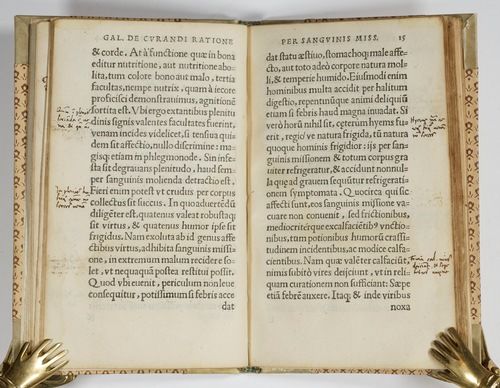 GAL. DE CVRANDI RATIONE
& corde. At à functione quæ in bona
editur nutritione, aut nutritione abo-
lita, tum colore bono aut malo, tertia
facultas, nempe nutrix, quam à iecore
proficisci demonstrauimus, agnitionē
fortita est. Vbi ergo extantibus plenitu
dinis signis valentes facultates fuerint,
venam incides videlicet, si tensiua qui
dem sit affectio, nullo discrimine: ma-
gisq; etiam in phlegmonode. Sin infe-
sta sit degrauans plenitudo, haud sem-
per sanguinis molienda detractio est.
Fieri enim potest vt crudus per corpus
collectus sit succus. In quo aduertēdū
diligēter est, quatenus valeat robustaq;
sit virtus, & quatenus humor ipse sit
frigidus. Nam exoluta ab id genus affe
ctibus virtus, adhibita sanguinis missi-
one, in extremum malum recidere so-
let, vt nequaquā postea restitui possit.
Quod vbi euenit, periculum non leue
consequitur, potissimum si febris acce
dat
PER SANGVINIS MISS. 15
dat statu æstiuo, stomachoq; male affe-
cto, aut toto adeò corpore natura mol-
li, & temperie humido. Eiusmodi enim
hominibus multa accidit per halitum
digestio, repentinūque animi deliquiū
etiam si febris haud magna inuadat. Si
verò horū nihil sit, ceterùm hyems fue-
rit, regio ve natura frigida, tū natura
quoque hominis frigidior: ijs per san-
guinis missionem & totum corpus gra
uiter refrigeratur, & accidunt nonnul-
la quæ ad grauem sequūtur refrigerati-
onem symptomata. Quocirca qui sic
affecti sunt, eos sanguinis missione va-
cuare non conuenit, sed frictionibus,
mediocritérque excalfacientib⁹ vnctio-
nibus, tum potionibus humorū crassi-
tudinem incidentibus, ac modice calfa-
cientibus. Nam quæ valēter calfaciūt,
nimis subitò vires deijciunt, vt in reli-
quam curationem non sufficiant: Sæpe
etiā febrē auxere. Itaq; & inde viribus
noxa